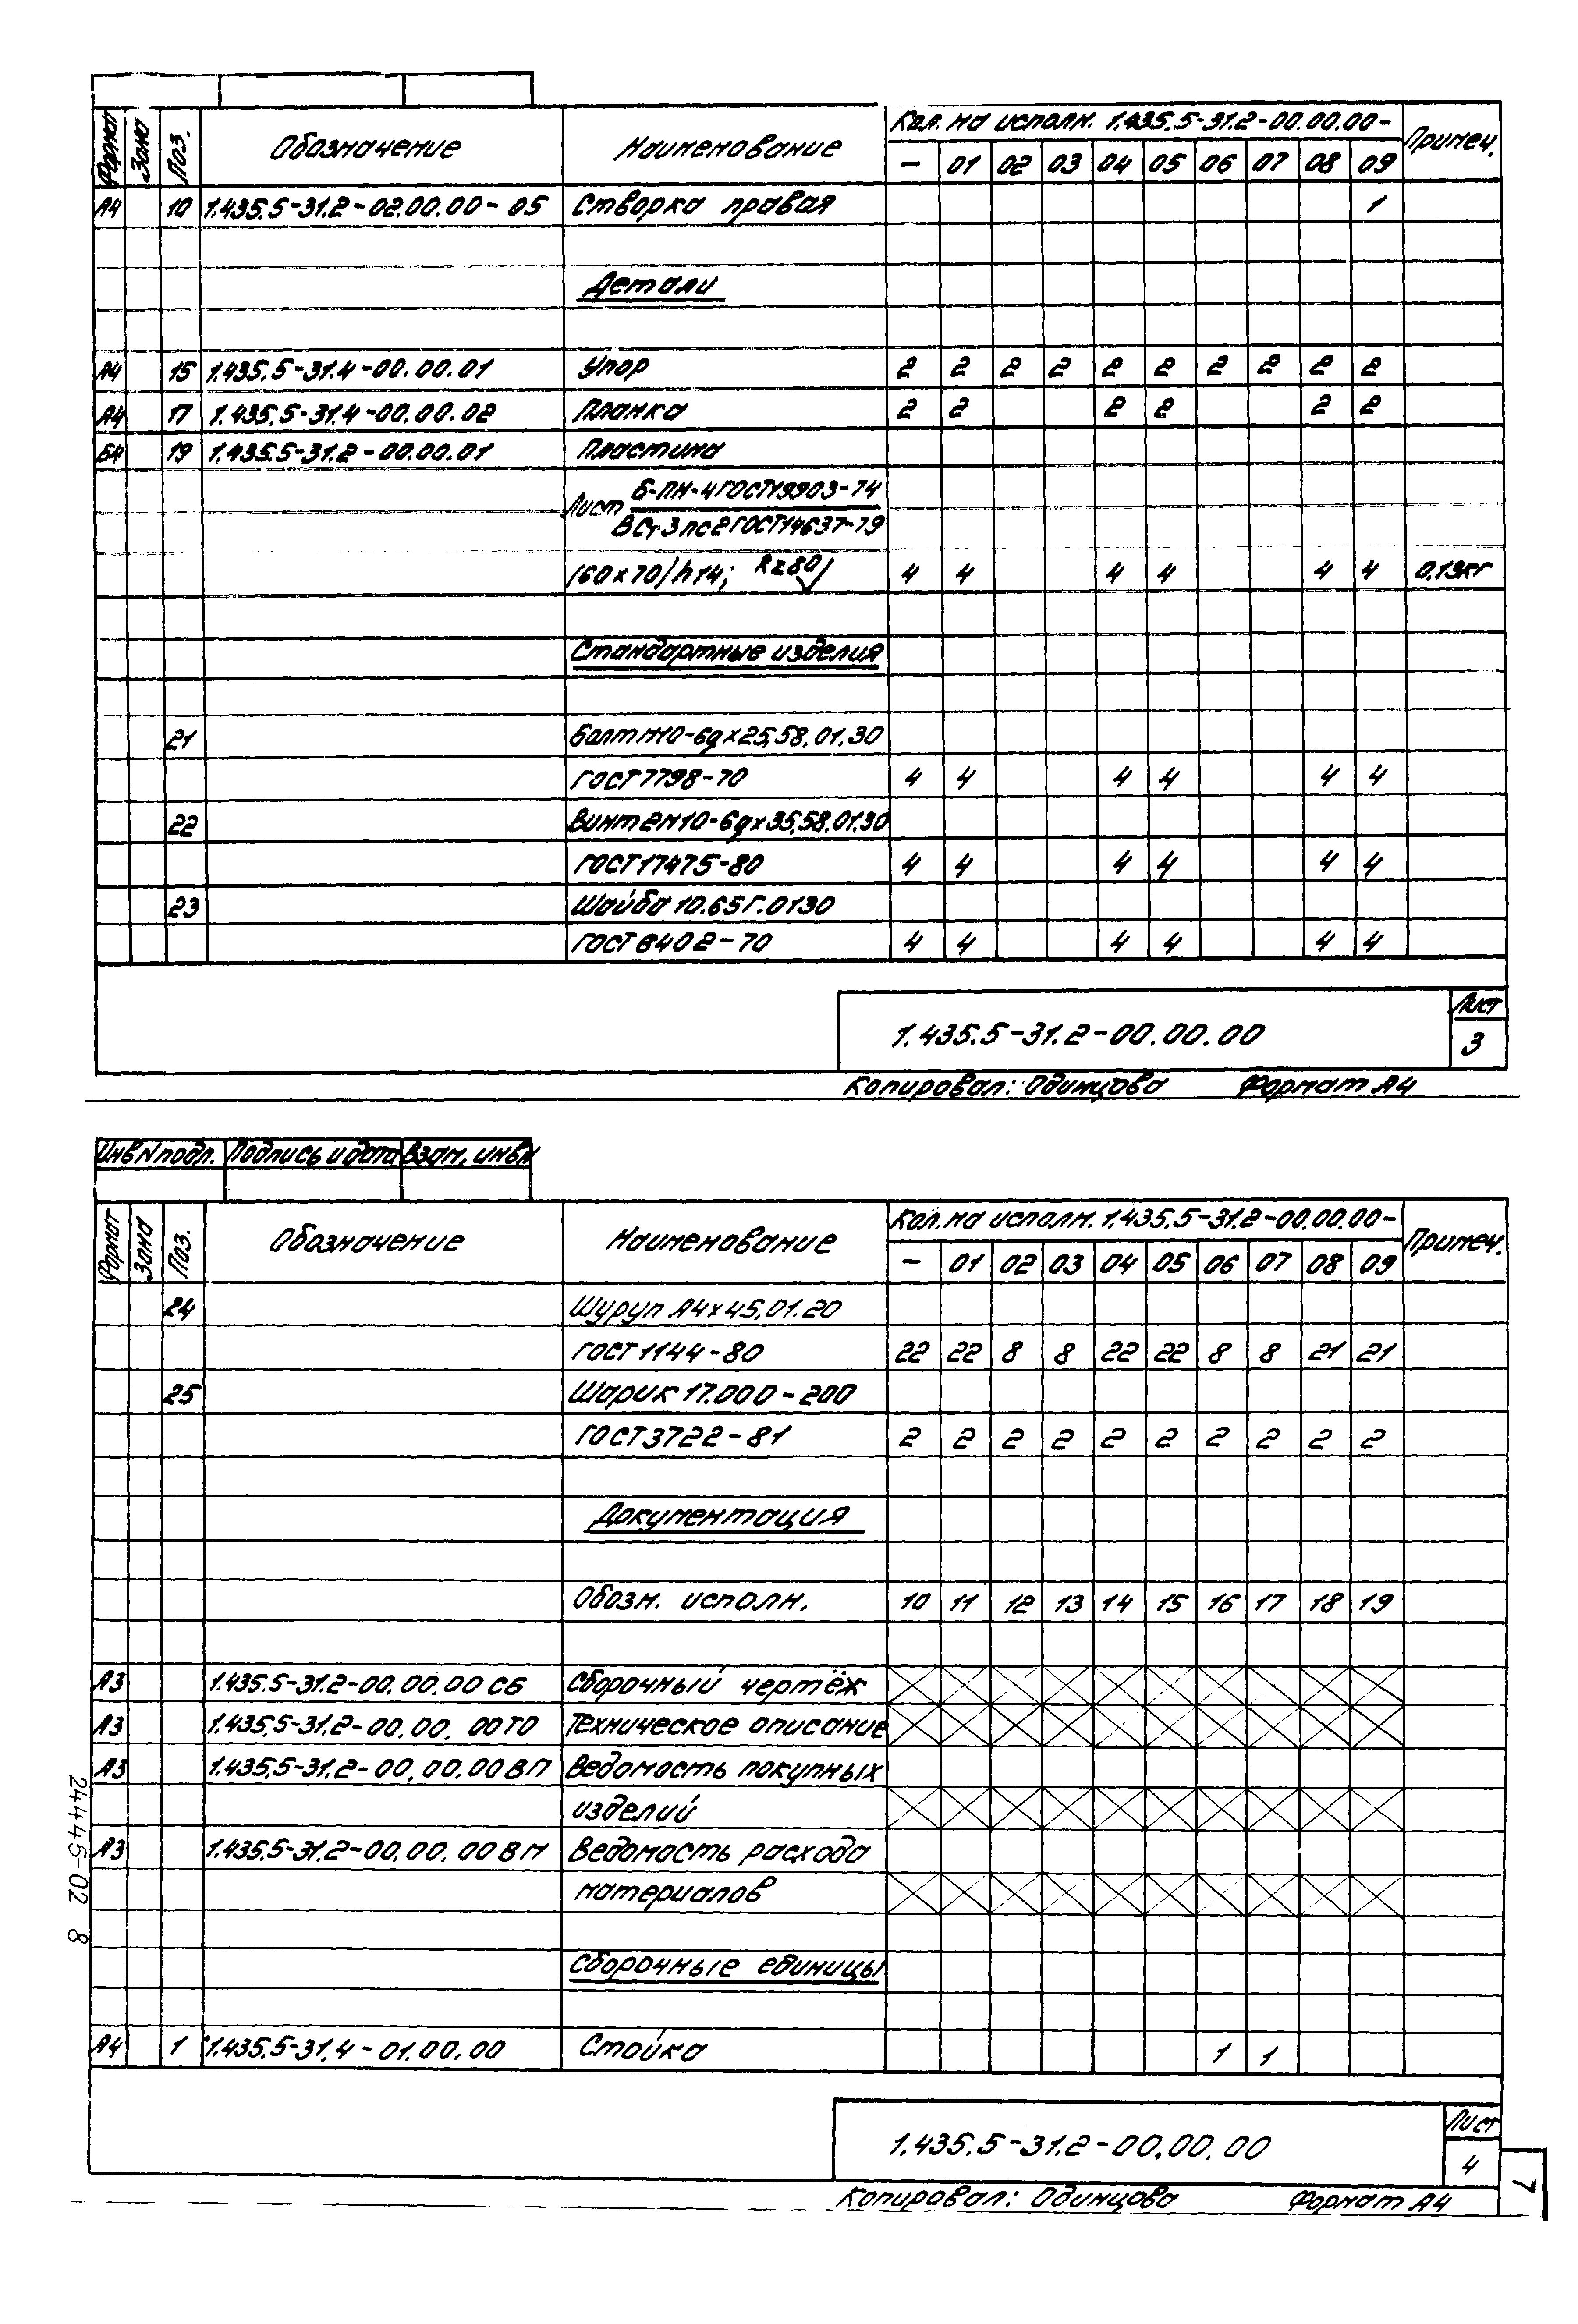 Формат Зона Поз. Обозначение Наименование Кол. на исполн. 1.435.5-31.2-00.00.00- Примеч.
— 01 02 03 04 05 06 07 08 09
А4 10 1.435.5-31.2-02.00.00-05 Створка правая 1
Детали
А4 15 1.435.5-31.4-00.00.01 Упор 2 2 2 2 2 2 2 2 2 2
А4 17 1.435.5-31.4-00.00.02 Планка 2 2 2 2 2 2
Б4 19 1.435.5-31.2-00.00.01 Пластина
Лист Б-ПН-4 ГОСТ19903-74
ВСт3пс2 ГОСТ14637-79
160×70/h14; Rz80 4 4 4 4 4 4 0,13кг
Стандартные изделия
21 Болт М10-6g×25,58.01.30
ГОСТ7798-70 4 4 4 4 4 4
22 Винт 2М10-6g×35,58.01.30
ГОСТ17475-80 4 4 4 4 4 4
23 Шайба 10.65Г.0130
ГОСТ6402-70 4 4 4 4 4 4
1.435.5-31.2-00.00.00 Лист
3
Копировал: Одинцова Формат А4
Инв N подл. Подпись и дата Взам. инв N
Формат Зона Поз. Обозначение Наименование Кол. на исполн. 1.435.5-31.2-00.00.00- Примеч.
— 01 02 03 04 05 06 07 08 09
24 Шуруп А4×45.01.20
ГОСТ1144-80 22 22 8 8 22 22 8 8 21 21
25 Шарик 17.000-200
ГОСТ3722-81 2 2 2 2 2 2 2 2 2 2
Документация
Обозн. исполн. 10 11 12 13 14 15 16 17 18 19
А3 1.435.5-31.2-00.00.00 СБ Сборочный чертёж
А3 1.435.5-31.2-00.00.00ТО Техническое описание
А3 1.435.5-31.2-00.00.00 ВП Ведомость покупных
изделий
А3 1.435.5-31.2-00.00.00 ВМ Ведомость расхода
материалов
Сборочные единицы
А4 1 1.435.5-31.4-01.00.00 Стойка 1 1
1.435.5-31.2-00.00.00 Лист
4
Копировал: Одинцова Формат А4
7
24445-02 8